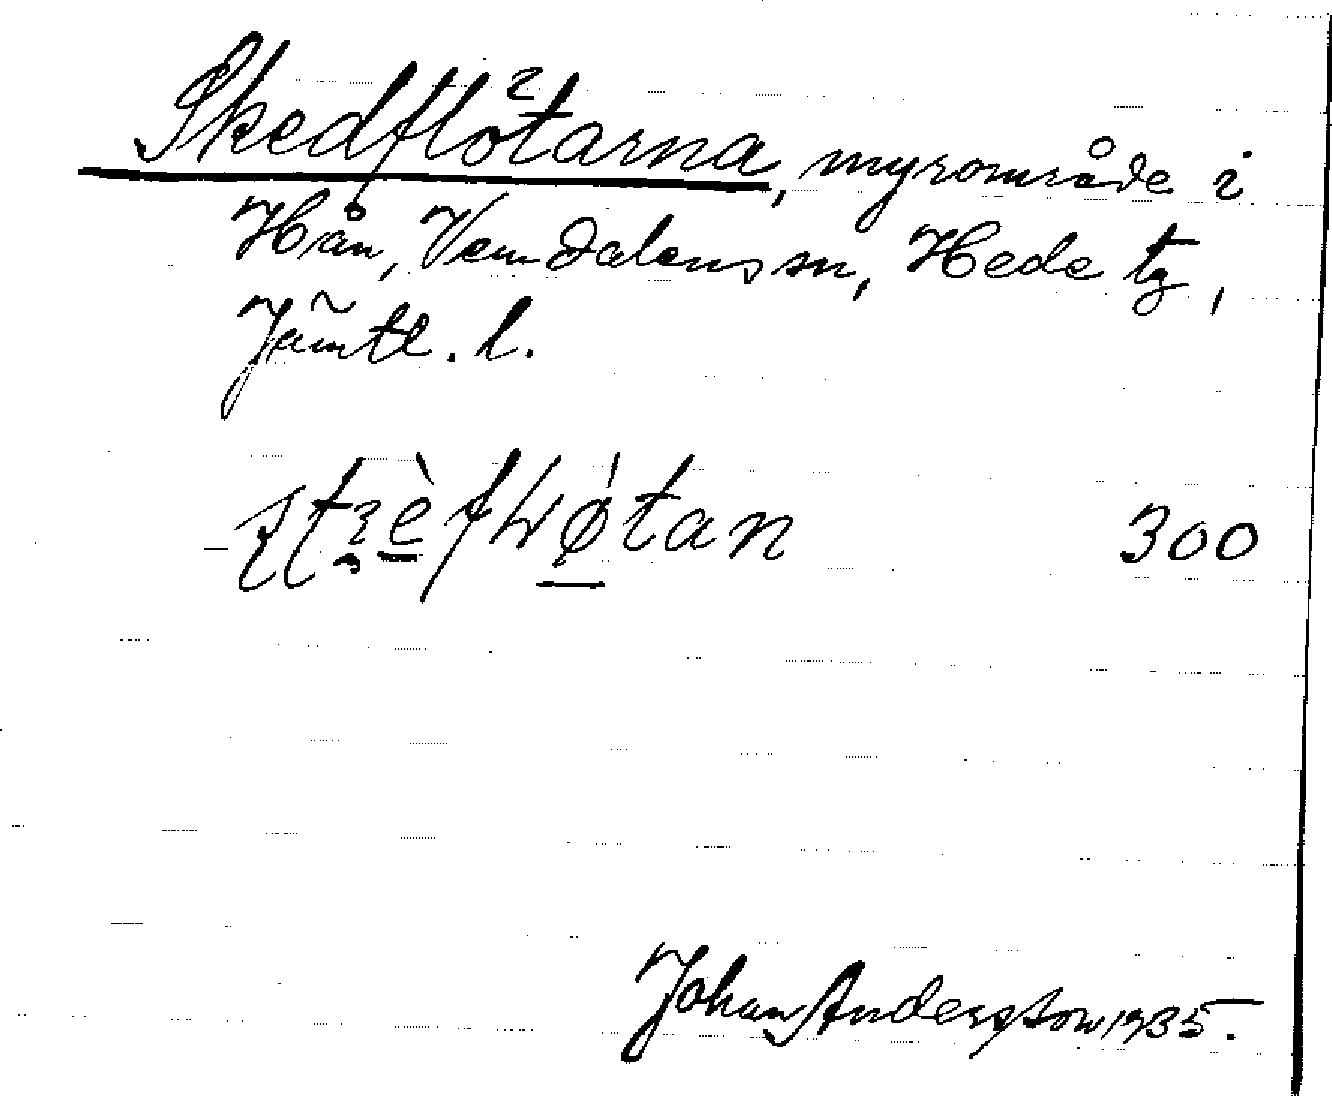 Skedflötarna, myrområde i
Hån, Vemdalens sn, Hede tg,
Jämtl. l.
300
Johan Andersson 1935.